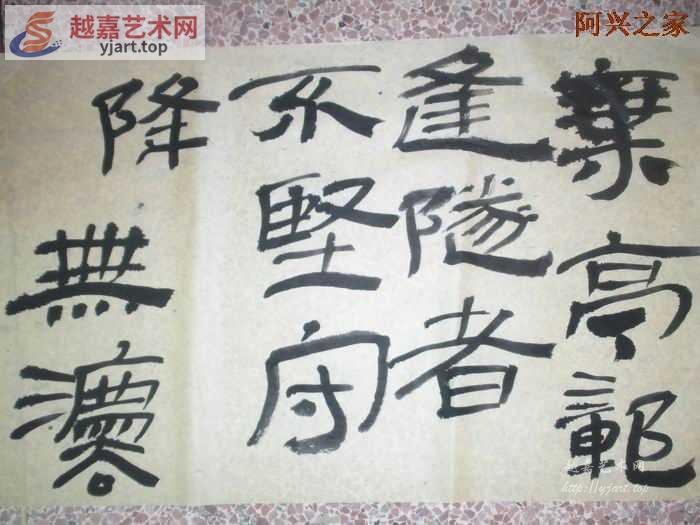 越嘉艺术网
yjart.top
阿兴之家
棄亭範
逢隧者
不堅守
降無
越嘉艺术网
http://yjart.top